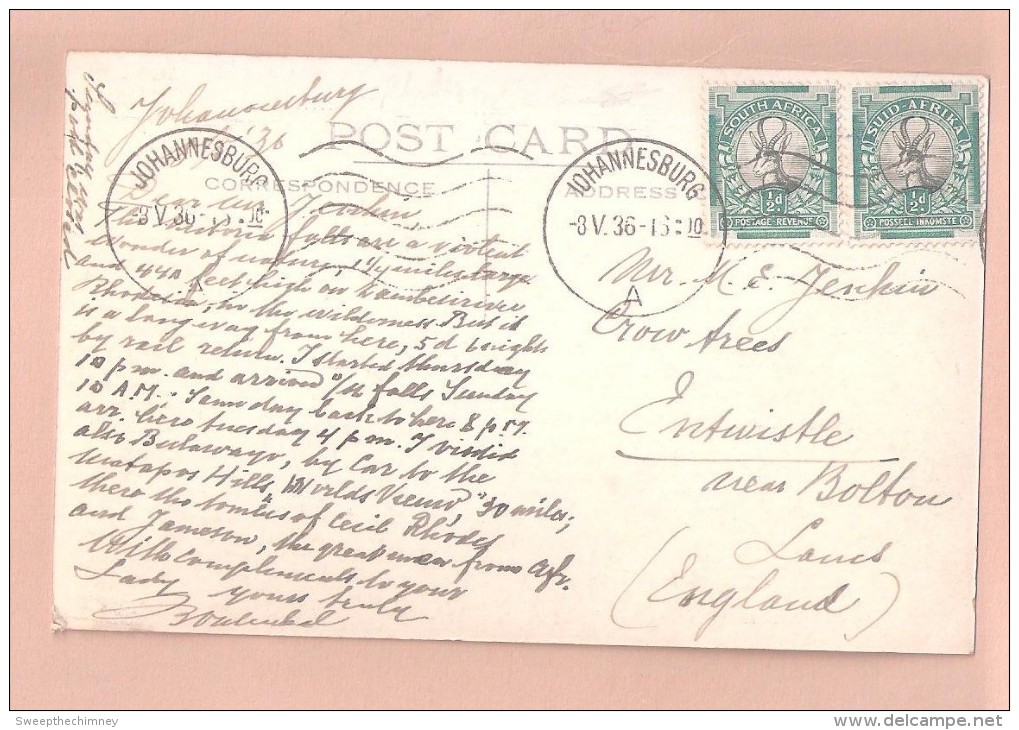 Johannesburg
36
POST CARD
CORRESPONDENCE
ADDRESS
JOHANNESBURG
-8 V. 36 -
A
JOHANNESBURG
-8 V. 36 -
A
SOUTH AFRICA
½d
POSTAGE-REVENUE
SUID-AFRIKA
½d
POSSEEL-INKOMSTE
Dear Mr Jenkin
The Victoria falls are a
wonder of nature, 1¼ miles large
and feet high on Zambesi river
Rhodesia, in the wilderness. But it
is a long way from here, 5 d 6 nights
by rail return. I started thursday
10 p m. and arrived falls Sunday
10 A M. Same day back to here 8 p M.
arr. here tuesday 4 p m. I visdit
also Bulawayo, by Car to the
Matapos Hills, "Worlds View" 30 miles;
there the tombs of Cecil Rhodes
and Jameson, the great men from Afr.
With compliments to your
Lady yours truly
Mr M. E. Jenkin
Crow trees
Entwistle
near Bolton
Lancs
(England)
Sweepthechimney
www.delcampe.net